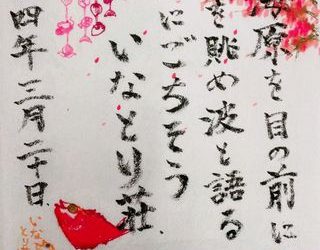 海原を目の前に
を眺め波と語る
にごちそう
いなとり荘
四年三月二十日